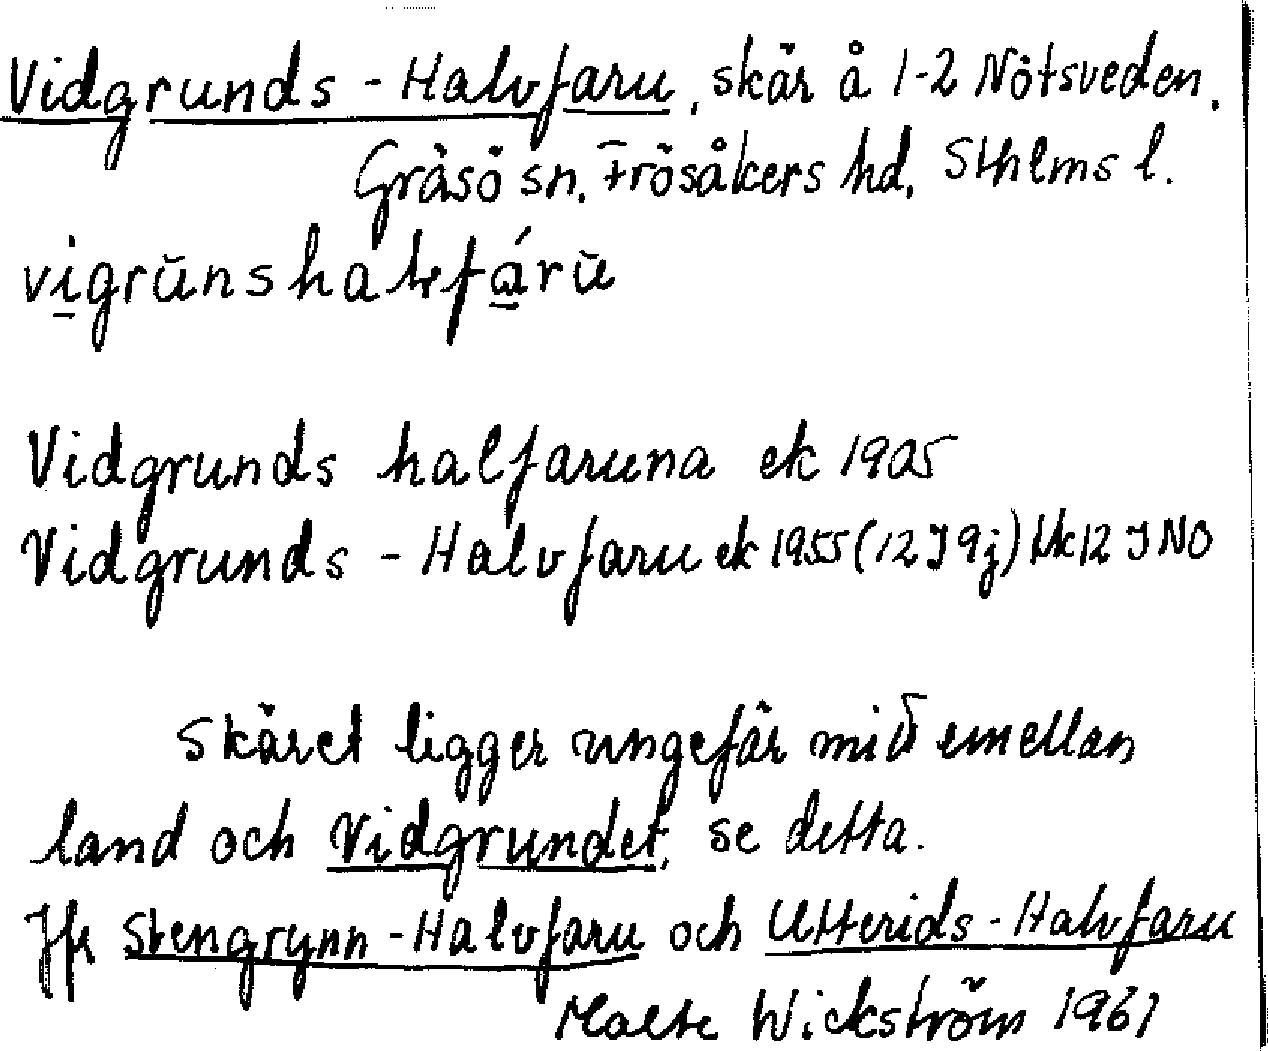 Vidgrunds - Halvfaru, skär å 1-2 Nötsveden.
Gräsö sn. Frösåkers hd, Sthlms l.
vigrŭnshalvfárŭ
Vidgrunds halfaruna ek 1905
Vidgrunds - Halvfaru ek 1955 (12 J 9j) 12 J NO
Skäret ligger ungefär mid emellan
land och Vidgrundet, se detta.
Jfr Stengrynn - Halvfaru och Utterids - Halvfaru
Malte Wickström 1961